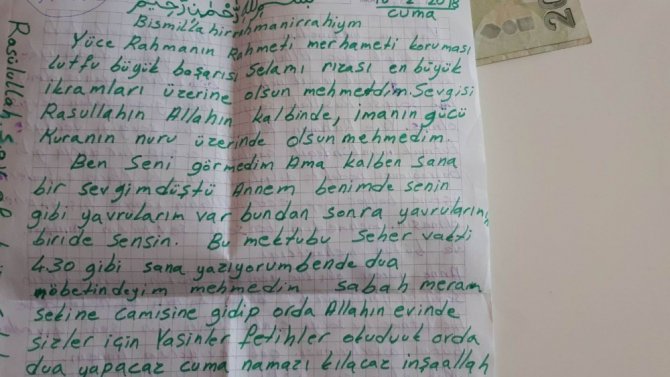 بسم الله الرحمن الرحيم
2 2018
cuma
Bismillahirrahmanirrahiym
Yüce Rahmanın Rahmeti merhameti koruması
lutfu büyük başarısı Selamı rızası en büyük
ikramları üzerine olsun mehmedim. Sevgisi
Rasullahın Allahın kalbinde, imanın gücü
Kuranın nuru üzerinde olsun mehmedim.
Ben Seni görmedim Ama kalben sana
bir sevgim düştü Annem benimde senin
gibi yavrularım var bundan sonra yavrularının
biride sensin. Bu mektubu Seher vakti
4.30 gibi sana yazıyorum bende dua
nöbetindeyim mehmedim sabah meram
sekine camisine gidip orda Allahın evinde
sizler için Yasinler fetihler okuduuk orda
dua yapacaz cuma namazı kılacaz inşaallah
Rasülullah
20